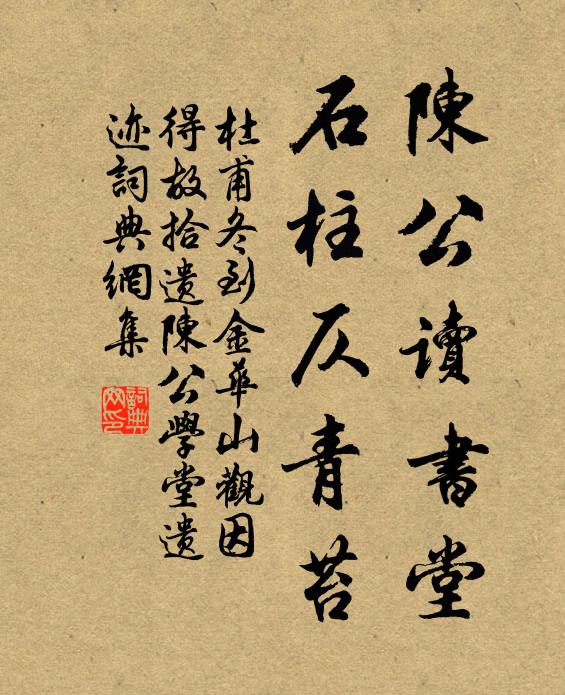 陳公讀書堂
石柱仄青苔
杜甫冬到金華山觀因
得故拾遺陳公學堂遺
迹詞典網集
詞典網印